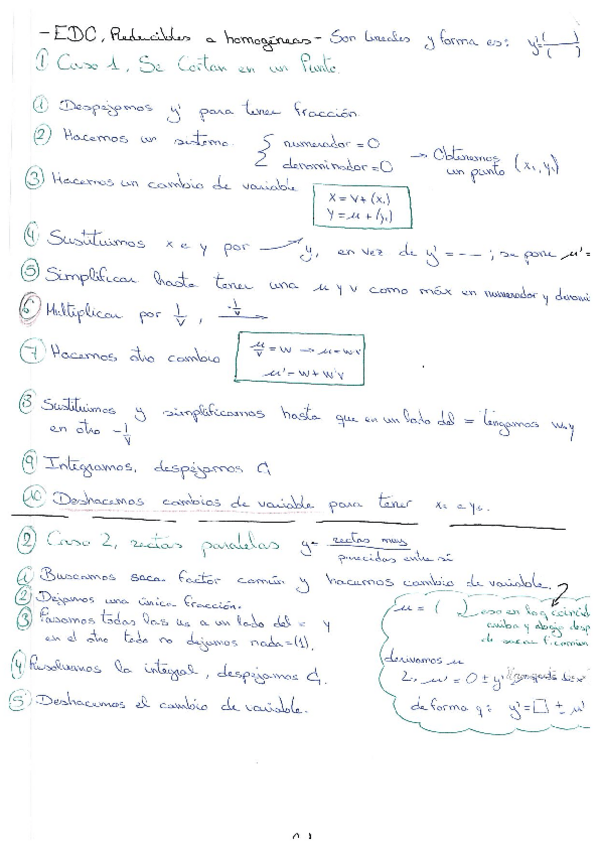 - EDC, Reducibles a homogéneas - Son lineales y forma es: y'= (   ) / (   )
① Caso 1, Se Cortan en un Punto.
① Despejamos y' para tener fracción.
② Hacemos un sistema { numerador = 0
denominador = 0 → Obtenemos un punto (x₁, y₁)
③ Hacemos un cambio de variable
x = v + (x₁)
y = u + (y₁)
④ Sustituimos x e y por y, en vez de y' = --- ; se pone u' =
⑤ Simplificar hasta tener una u y v como máx en numerador y denomi
⑥ Multiplicar por 1/v, ·1/v →
⑦ Hacemos otro cambio
u/v = w → u = wv
u' = w + w'v
⑧ Sustituimos y simplificamos hasta que en un lado del = tengamos w, y
en otro -1/v
⑨ Integramos, despejamos C₁
⑩ Deshacemos cambios de variable para tener x₁ e y₁.
② Caso 2, rectas paralelas y= rectas muy
parecidas entre sí
① Buscamos sacar factor común y hacemos cambio de variable.
② Dejamos una única fracción.
③ Pasamos todas las us a un lado del = y
en el otro lado no dejamos nada = (1).
④ Resolvemos la integral, despejamos C₁.
⑤ Deshacemos el cambio de variable.
u = (   ) eso en lo q coincid
arriba y abajo desp
de sacar f. común
derivamos u
u' = 0 ± y'
de forma q: y' = □ ± u'